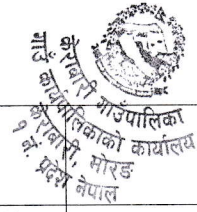 केराबारी गाउँपालिका
गाउँ कार्यपालिकाको कार्यालय
केराबारी, मोरङ
१ नं. प्रदेश नेपाल